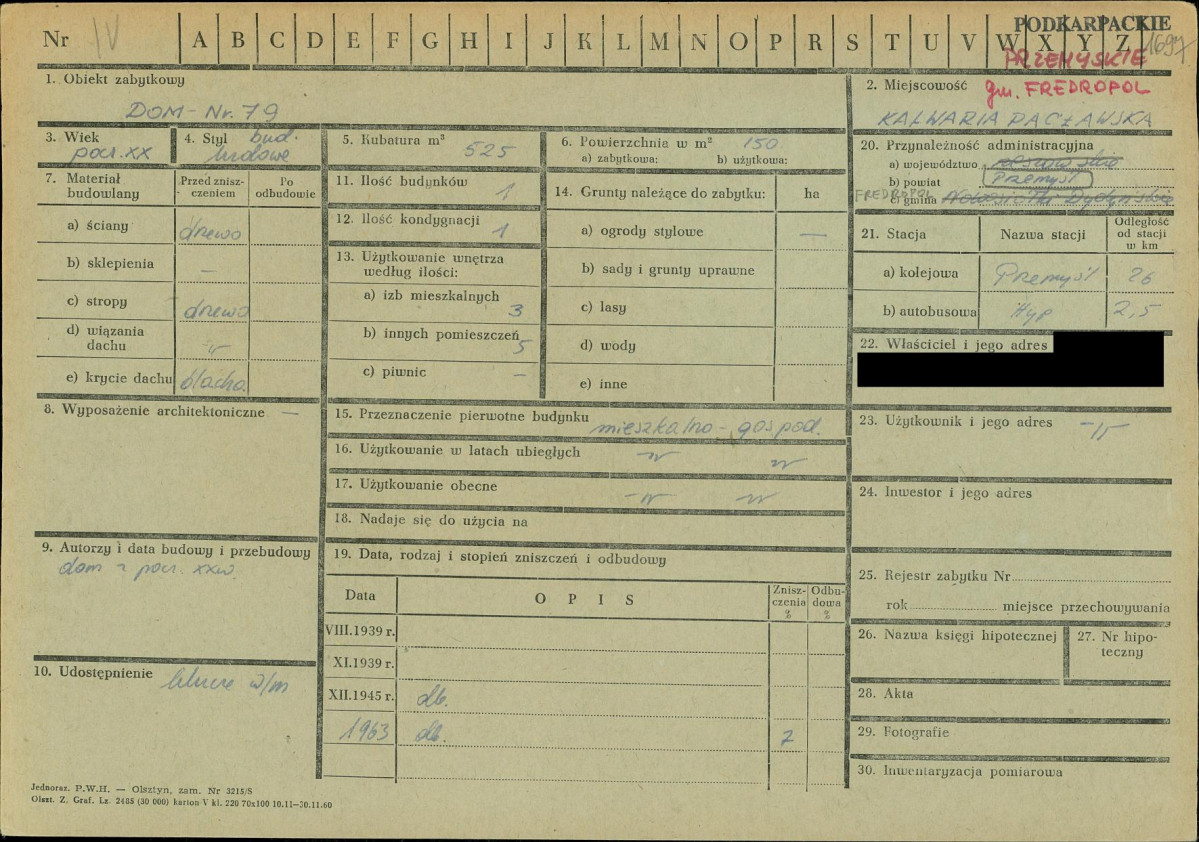 PODKARPACKIE
Nr IV A B C D E F G H I J K L M N O P R S T U V W X Y Z 1697
PRZEMYSKIE
1. Obiekt zabytkowy
DOM - Nr. 79
2. Miejscowość gm. FREDROPOL
KALWARIA PACŁAWSKA
3. Wiek
pocz. XX
4. Styl bud.
ludowe
5. Kubatura m³ 525
6. Powierzchnia w m² 150
a) zabytkowa: b) użytkowa:
7. Materiał budowlany
Przed zniszczeniem
Po odbudowie
a) ściany drewo
b) sklepienia —
c) stropy drewo
d) wiązania dachu -"-
e) krycie dachu blacha.
8. Wyposażenie architektoniczne —
9. Autorzy i data budowy i przebudowy
dom z pocz. XXw.
10. Udostępnienie klucze w/m
11. Ilość budynków 1
12. Ilość kondygnacji 1
13. Użytkowanie wnętrza według ilości:
a) izb mieszkalnych 3
b) innych pomieszczeń 5
c) piwnic —
14. Grunty należące do zabytku: ha
a) ogrody stylowe —
b) sady i grunty uprawne
c) lasy
d) wody
e) inne
15. Przeznaczenie pierwotne budynku
mieszkalno - gospod.
16. Użytkowanie w latach ubiegłych -"- -"-
17. Użytkowanie obecne -"- -"-
18. Nadaje się do użycia na
19. Data, rodzaj i stopień zniszczeń i odbudowy
Data OPIS Zniszczenia % Odbudowa %
VIII.1939 r.
XI.1939 r.
XII.1945 r. db.
1963 db. 7
20. Przynależność administracyjna
a) województwo rzeszowskie
b) powiat Przemyśl
FREDROPOL
c) gmina Nowosiółki Dydyńskie
21. Stacja Nazwa stacji Odległość od stacji w km
a) kolejowa Przemyśl 26
b) autobusowa Hyp 2,5
22. Właściciel i jego adres
23. Użytkownik i jego adres -"-
24. Inwestor i jego adres
25. Rejestr zabytku Nr
rok miejsce przechowywania
26. Nazwa księgi hipotecznej
27. Nr hipoteczny
28. Akta
29. Fotografie
30. Inwentaryzacja pomiarowa
Jednoraz. P.W.H. — Olsztyn, zam. Nr 3215/S
Olszt. Z. Graf. Lz. 2485 (30 000) karton V kl. 220 70x100 10.11—30.11.60